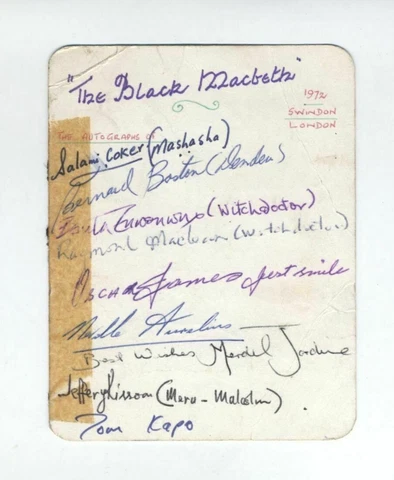 "The Black Macbeth"
1972
SWINDON
LONDON
THE AUTOGRAPHS OF
Salami Coker (Mashasha)
Bernard Boston (Dendeus)
(Witchdoctor)
Raymond (Witchdoctor)
Oscar James Just smile
Neville Aurelius
Best Wishes Merdel Jordine
Jeffery Kissoon (Meru - Malcolm)
Tom Kapo